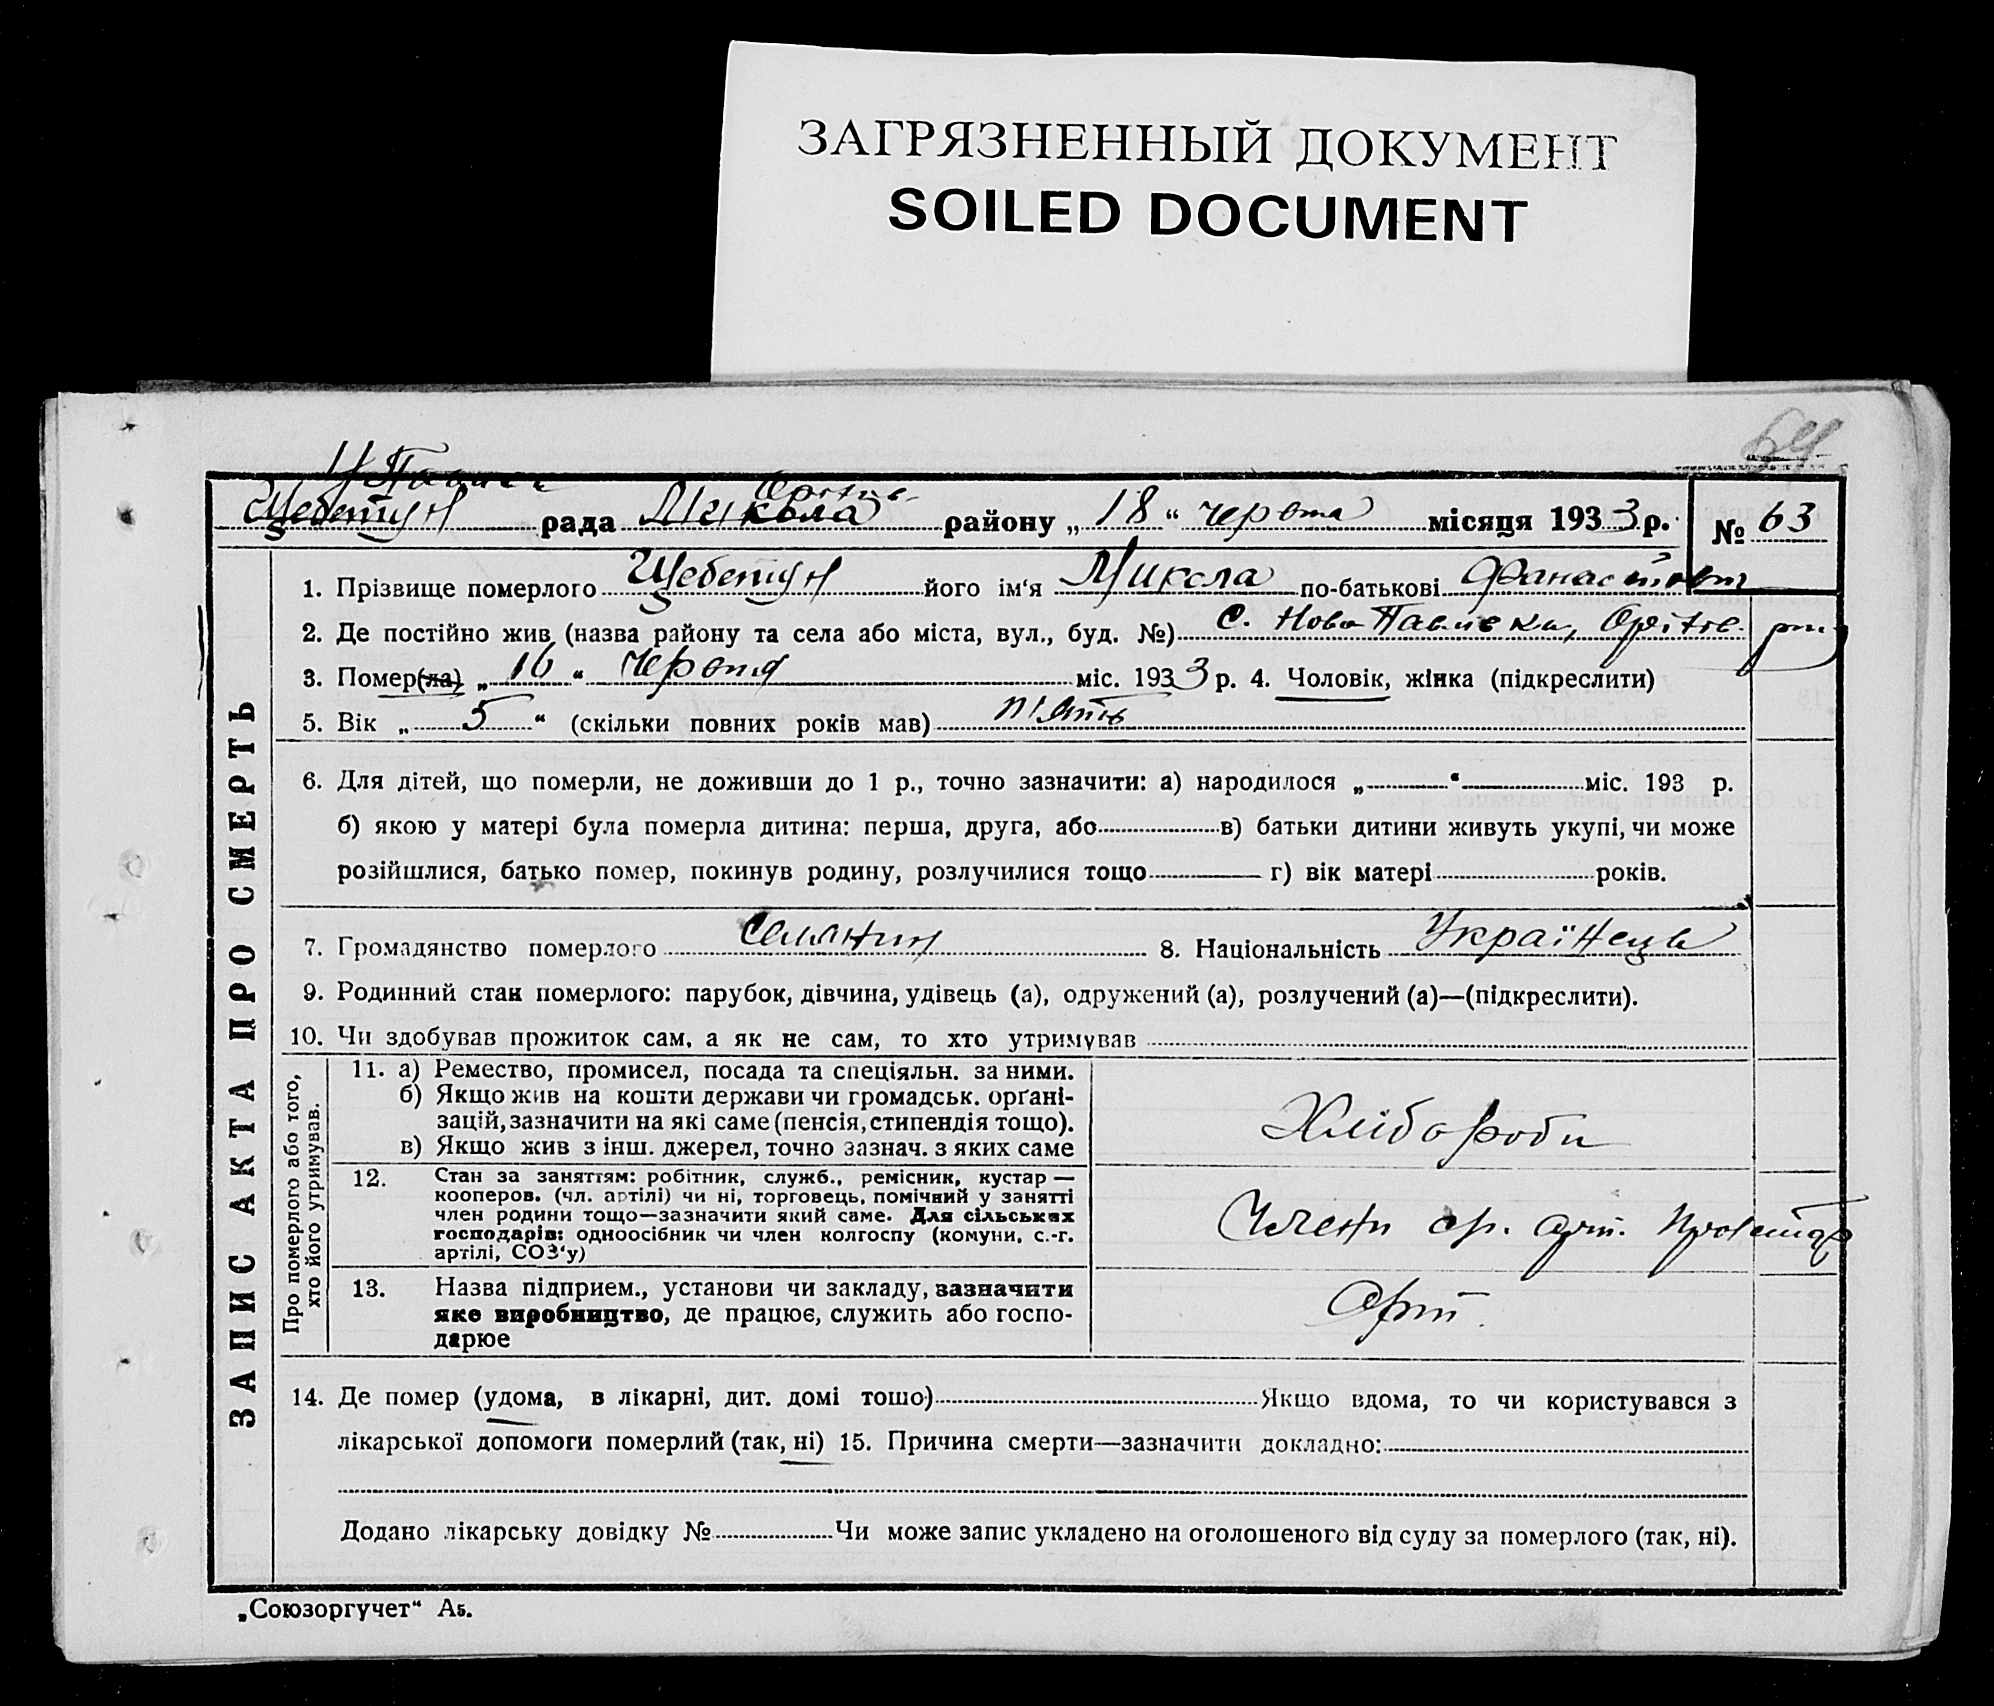 ЗАГРЯЗНЕННЫЙ ДОКУМЕНТ
SOILED DOCUMENT
64
Н Павлів
Орехів.
Щебетун рада Микола району „ 18 “ червня місяця 1933 р. № 63
1. Прізвище померлого Щебетун його ім'я Микола по-батькові
2. Де постійно жив (назва району та села або міста, вул., буд. №) с. Ново Павлівка, Оріхів.
3. Помер(ла) „ 16 “ червня міс. 1933 р. 4. Чоловік, жінка (підкреслити)
5. Вік „ 5 “ (скільки повних років мав) п'ять
6. Для дітей, що померли, не доживши до 1 р., точно зазначити: а) народилося „ “ міс. 193 р.
б) якою у матері була померла дитина: перша, друга, або в) батьки дитини живуть укупі, чи може
розійшлися, батько помер, покинув родину, розлучилися тощо г) вік матері років.
7. Громадянство померлого Селянин 8. Національність Українець
9. Родинний стан померлого: парубок, дівчина, удівець (а), одружений (а), розлучений (а)—(підкреслити).
10. Чи здобував прожиток сам, а як не сам, то хто утримував
Про померлого або того,
хто його утримував.
11. а) Ремество, промисел, посада та спеціяльн. за ними.
б) Якщо жив на кошти держави чи громадськ. орґані-
зацій, зазначити на які саме (пенсія, стипендія тощо).
в) Якщо жив з інш. джерел, точно зазнач. з яких саме
Хлібороби
12. Стан за заняттям: робітник, служб., ремісник, кустар—
кооперов. (чл. артілі) чи ні, торговець, помічний у занятті
член родини тощо—зазначити який саме. Для сільських
господарів: одноосібник чи член колгоспу (комуни, с.-г.
артілі, СОЗ'у)
Члени ар.
13. Назва підприєм., установи чи закладу, зазначити
яке виробництво, де працює, служить або госпо-
дарює
Арт.
14. Де помер (удома, в лікарні, дит. домі тошо) Якщо вдома, то чи користувався з
лікарської допомоги померлий (так, ні) 15. Причина смерти—зазначити докладно:
Додано лікарську довідку № Чи може запис укладено на оголошеного від суду за померлого (так, ні).
ЗАПИС АКТА ПРО СМЕРТЬ
„Союзоргучет“ А5.